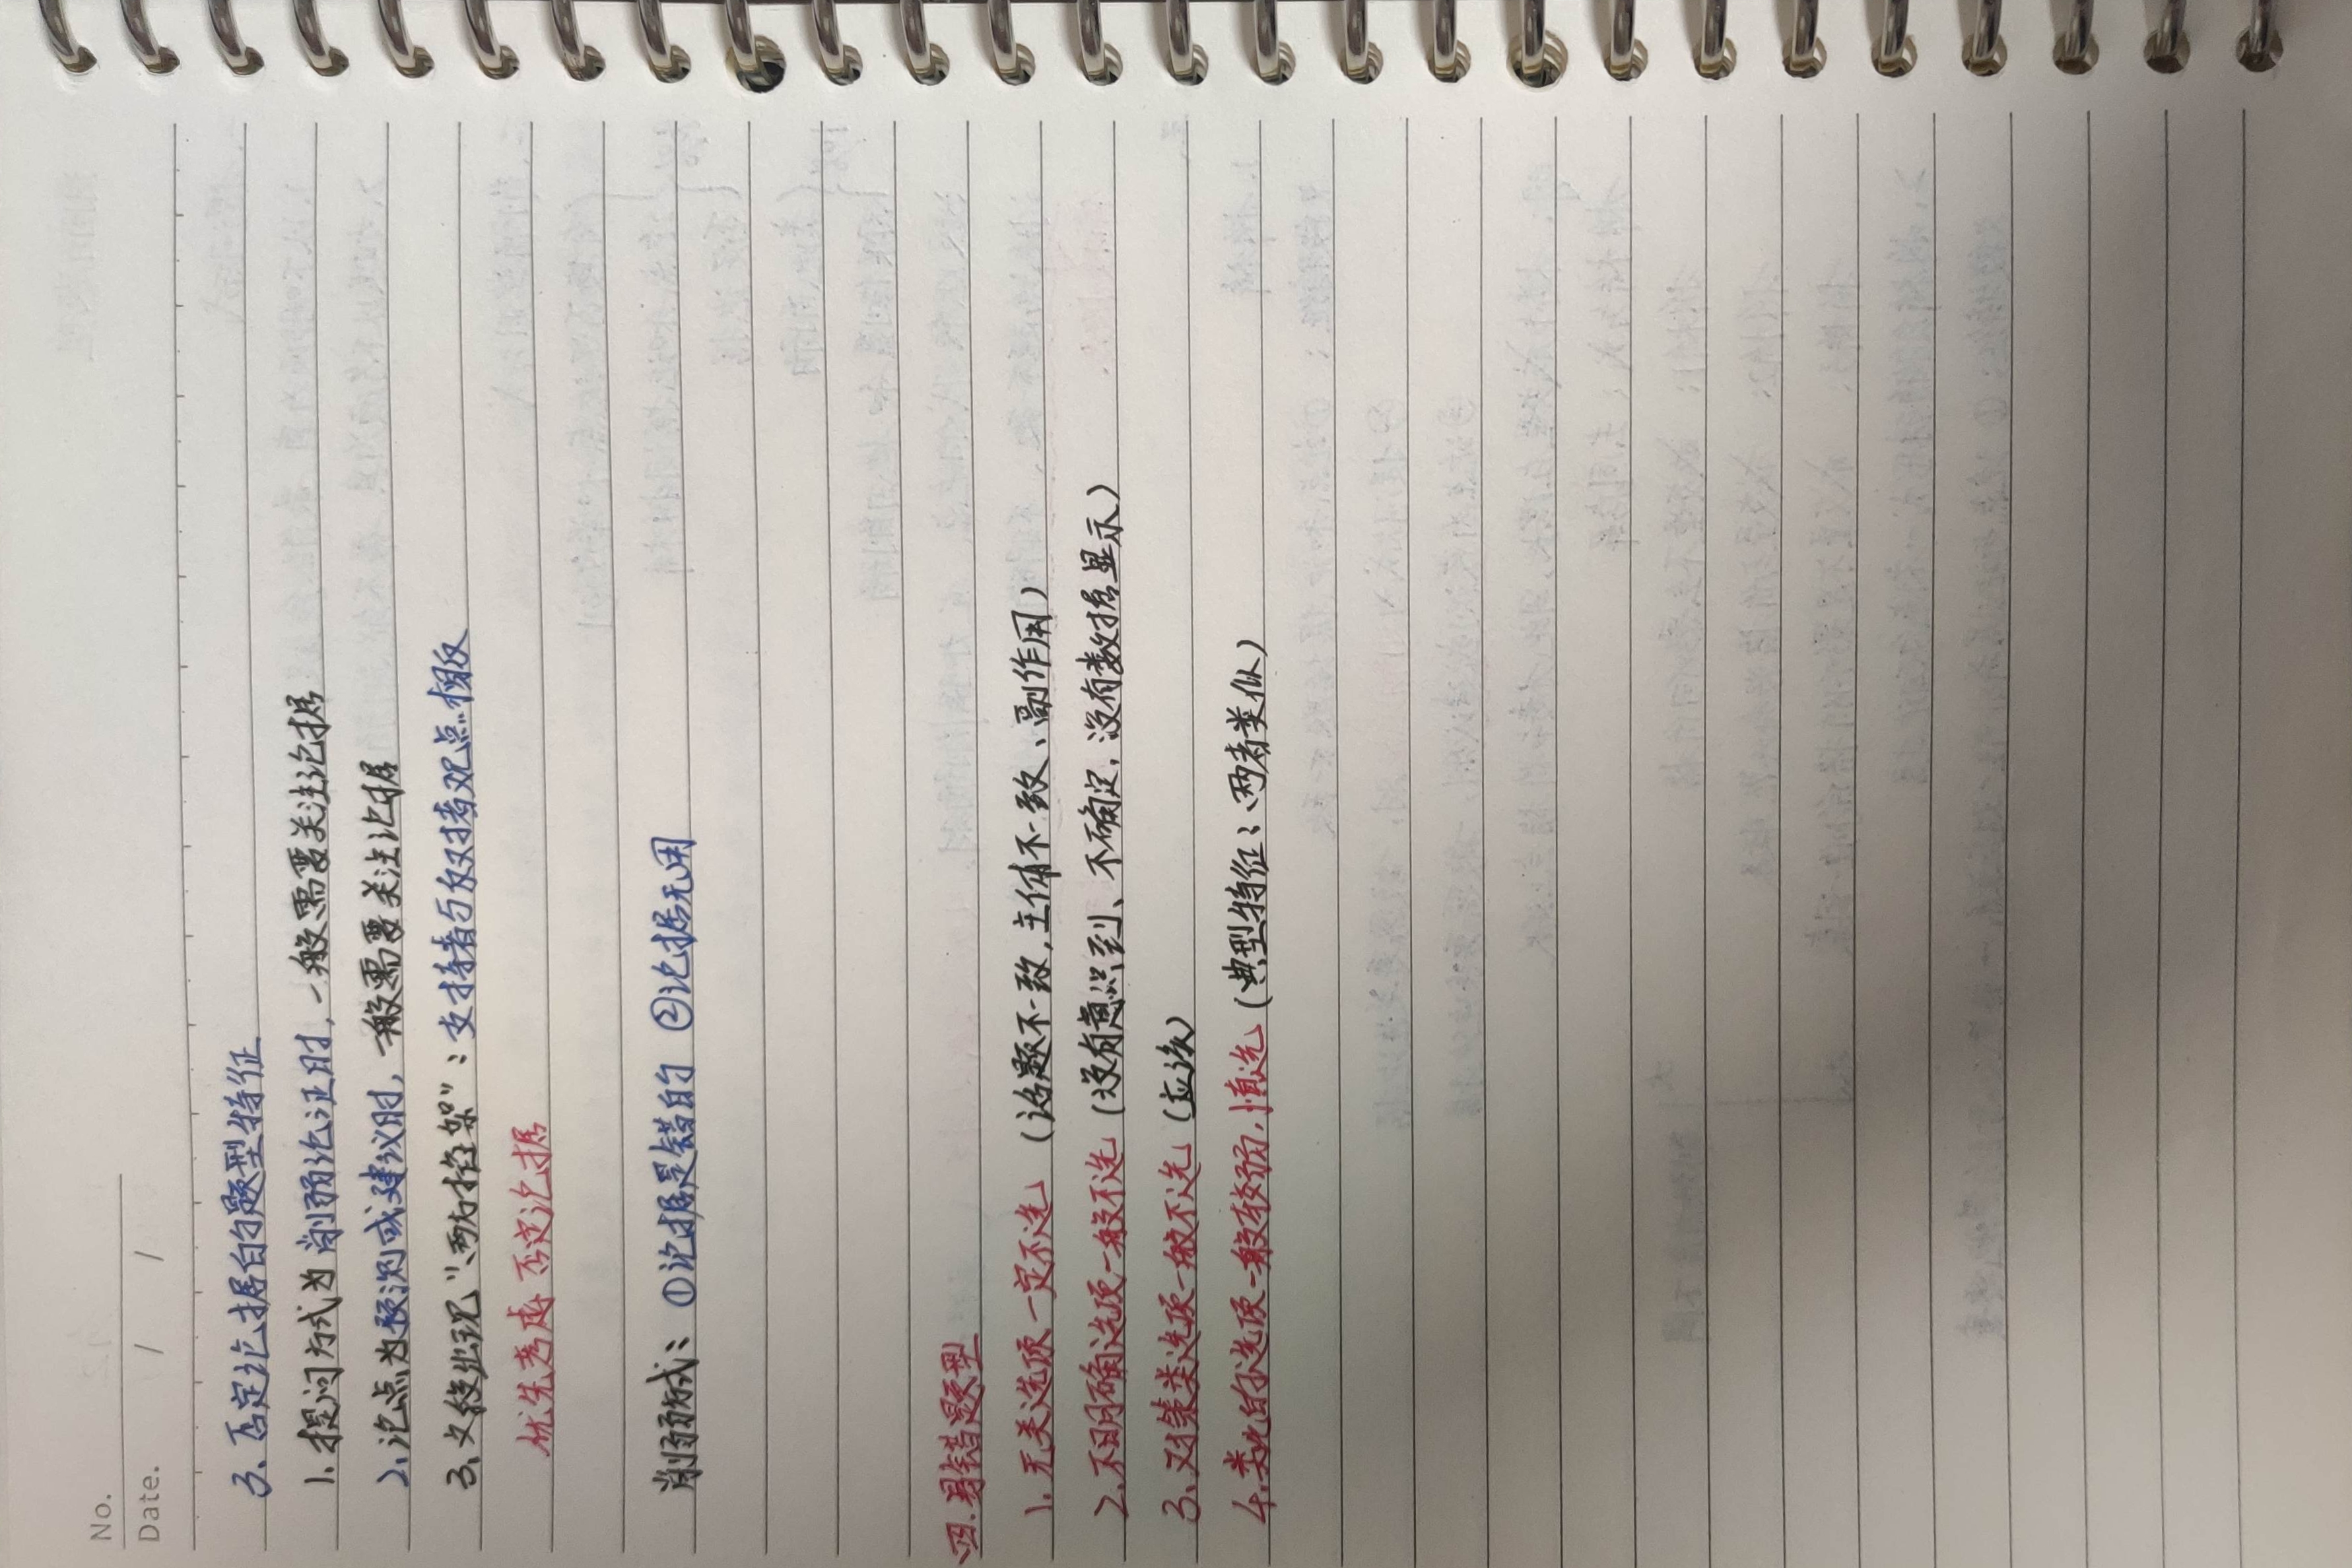 No.
Date. / /
3、否定论据的题型特征
1、提问方式为削弱论证时，一般需要关注论据
2、论点为预测或建议时，一般需要关注论据
3、文段出现“两方框架”：支持者与反对者观点相反
优先考虑否定论据
削弱方式：①论据是错的 ②论据无用
四.易错题型
1、无关选项一定不选（话题不一致，主体不一致、副作用）
2、不明确选项一般不选（没有意识到、不确定，没有数据显示）
3、对策类选项一般不选（应该）
4、类比的选项一般较弱，慎选（典型特征：两者类似）